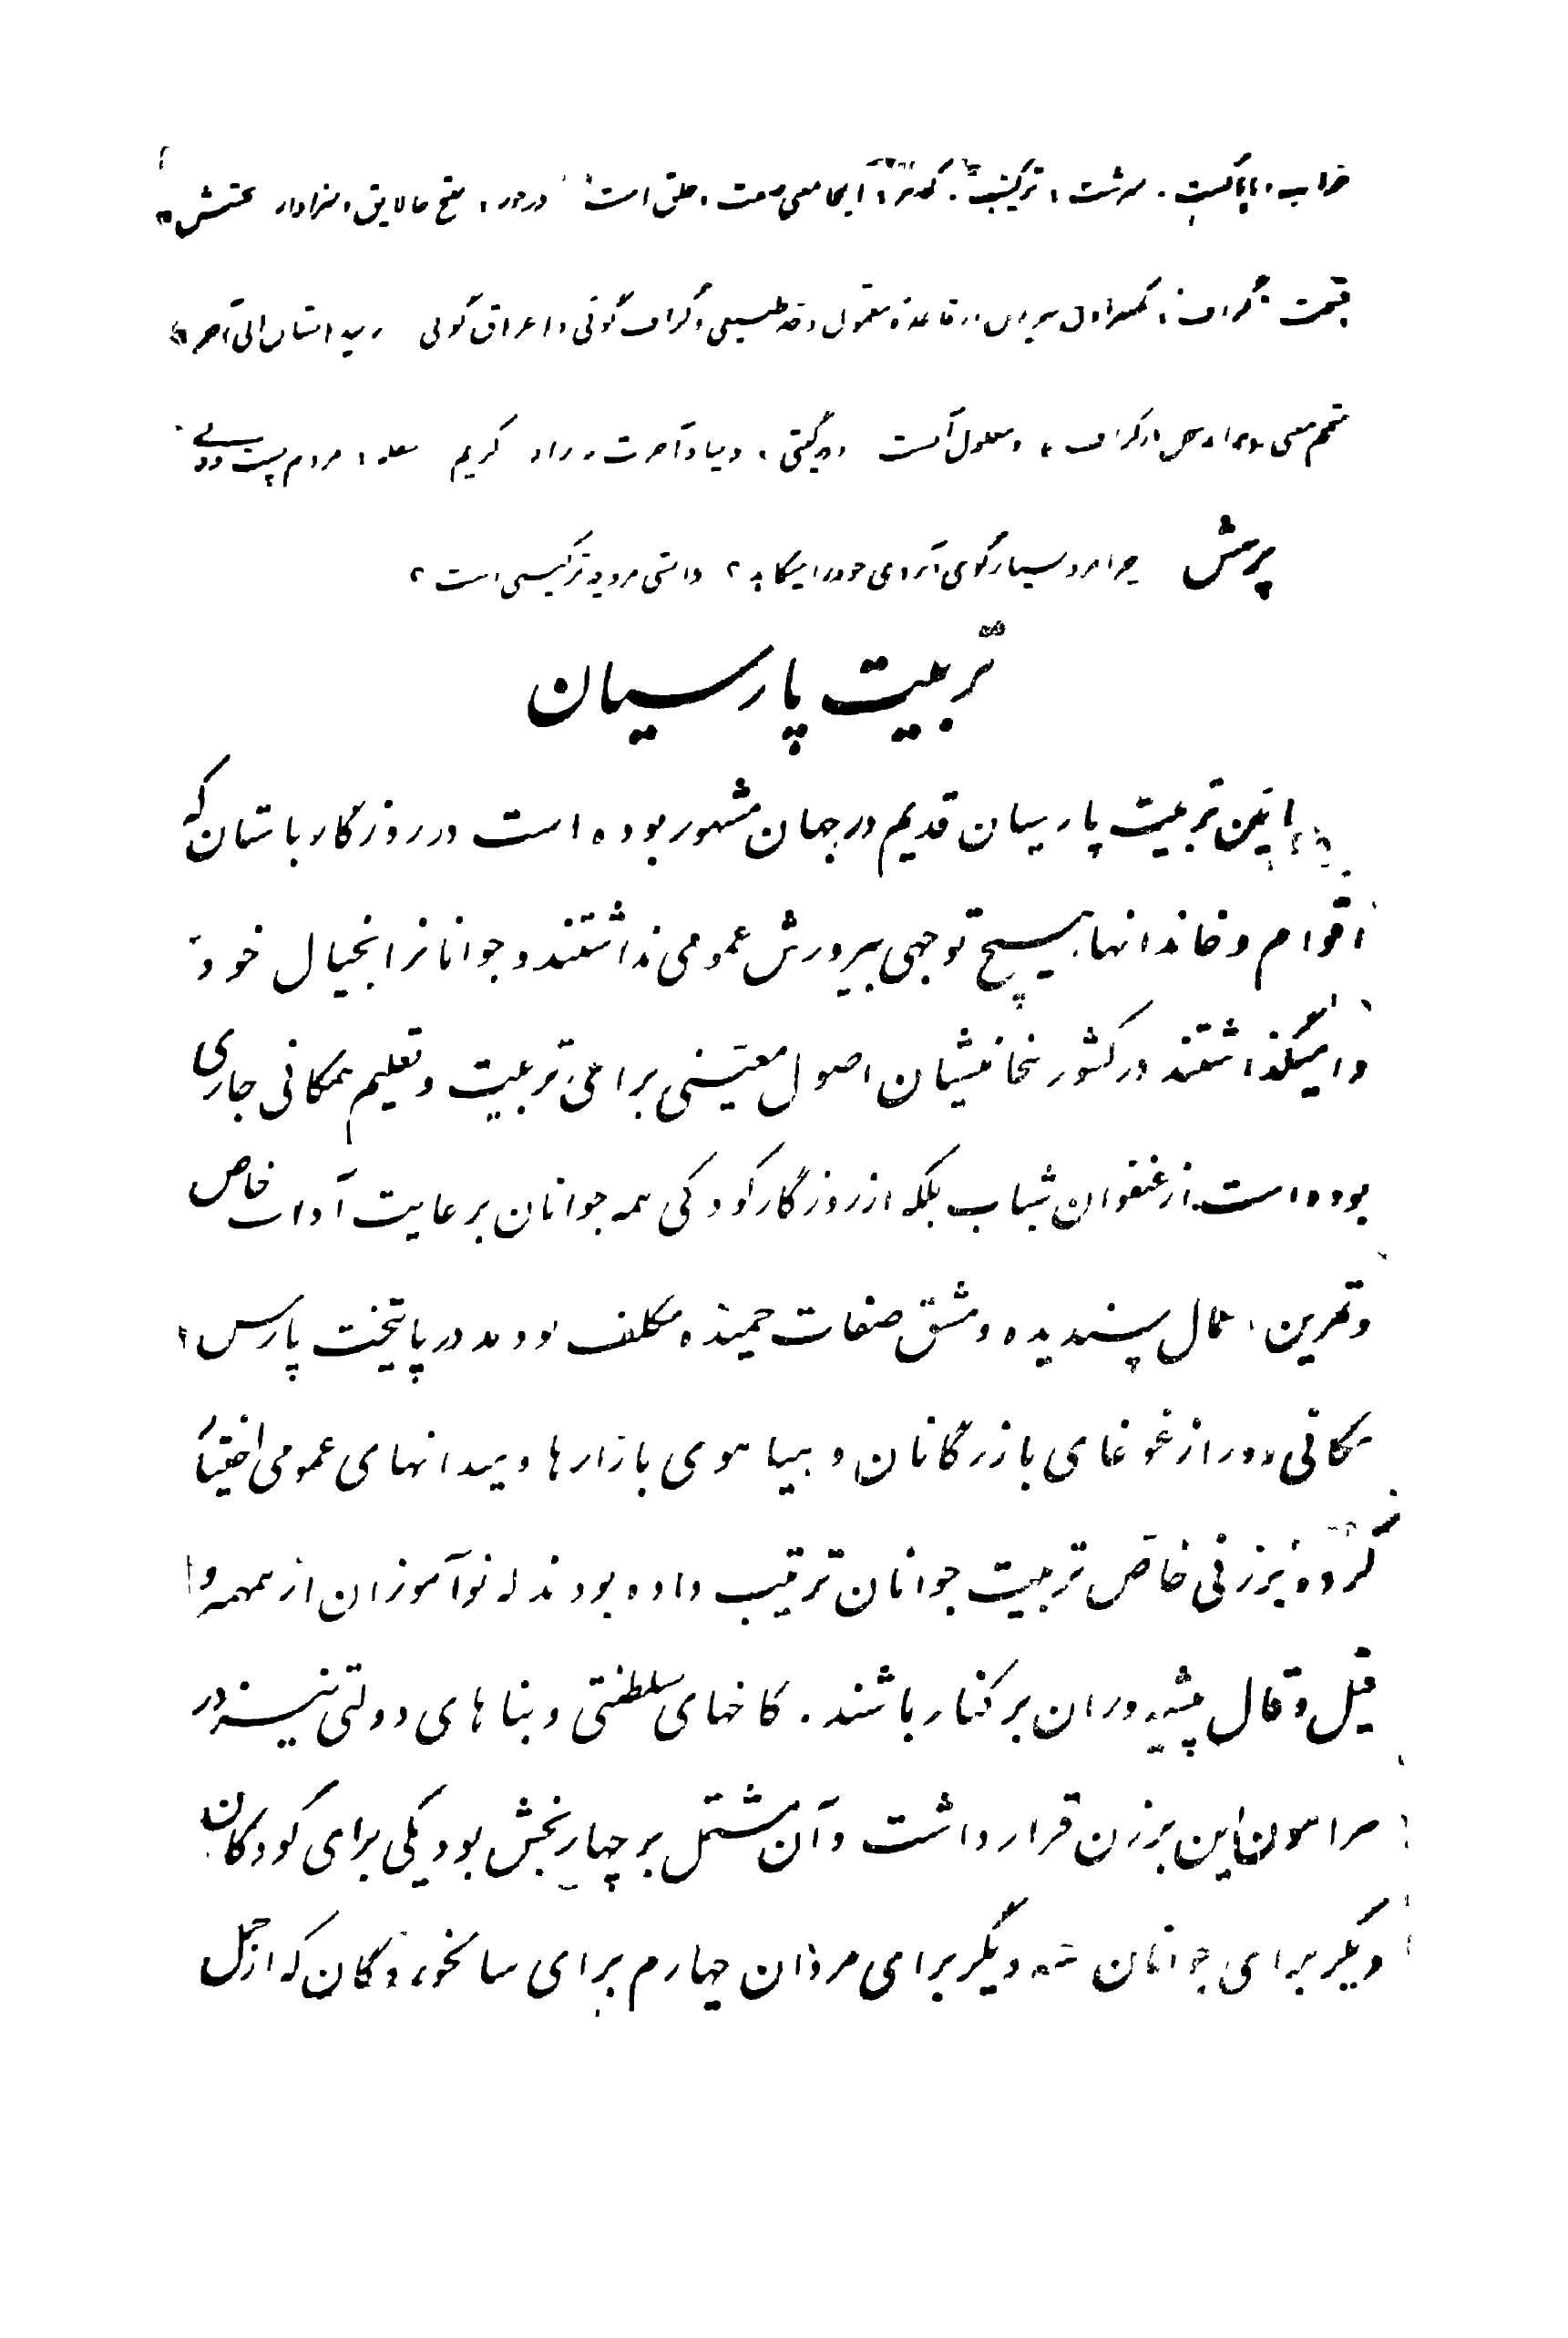 خراب و ناپاکست . سرشت ، ترکیب . گوهر ، اینجا معنی صفت و خلق است درخور ، لایق و سزاوار
قیمت گزاف ، بکسر اول بیرون از قاعده و معمول و گزاف گوئی و اغراق گوئی
و معمول است دو گیتی ، دنیا و آخرت . راد کریم سفله ، مردم پست
پرسش چرا مرد بسیارگوی آبروی خود را میکاهد ؟ راستی مرد چه ترکیبی است ؟
تربیت پارسیان
آیین تربیت پارسیان قدیم در جهان مشهور بوده است در روزگار باستان که
اقوام و خاندانها بهیچ توجهی بپرورش عمومی نداشتند و جوانانرا بخیال خود
وامیگذاشتند در کشور هخامنشیان اصول معینی برای تربیت و تعلیم همگانی جاری
بوده است از عنفوان شباب بلکه از روزگار کودکی همه جوانان برعایت آداب خاص
و تمرین اعمال پسندیده و مشق صفات حمیده مکلف بودند در پایتخت پارس
مکانی دور از غوغای بازرگانان و هیاهوی بازارها و میدانهای عمومی اختیار
کرده برزنی خاص تربیت جوانان ترتیب داده بودند که نوآموزان از همهمه و
قیل و قال پیشه وران برکنار باشند . کاخهای سلطنتی و بناهای دولتی نیز در
پیرامون این برزن قرار داشت و آن مشتمل بر چهار بخش بود یکی برای کودکان
دیگر برای جوانان سه دیگر برای مردان چهارم برای سالخوردگان که از حمل